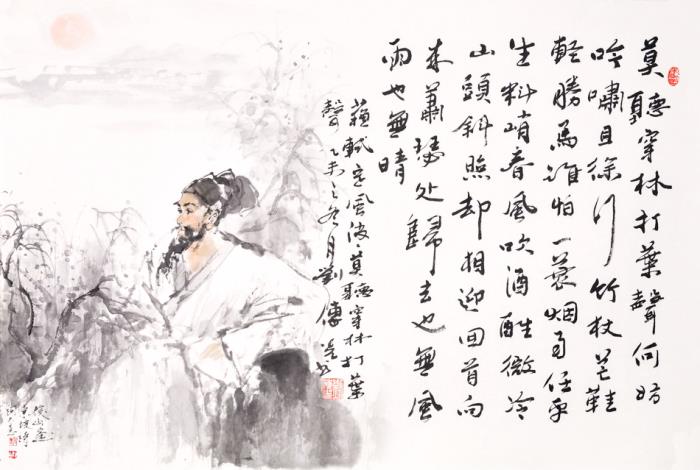 莫聽穿林打葉聲何妨
吟嘯且徐行竹杖芒鞋
輕勝馬誰怕一蓑烟雨任平
生料峭春風吹酒醒微冷
山頭斜照却相迎回首向
来蕭瑟处歸去也無風
雨也無晴
蘇軾定風波·莫聽穿林打葉
聲乙未之冬月劉傳书